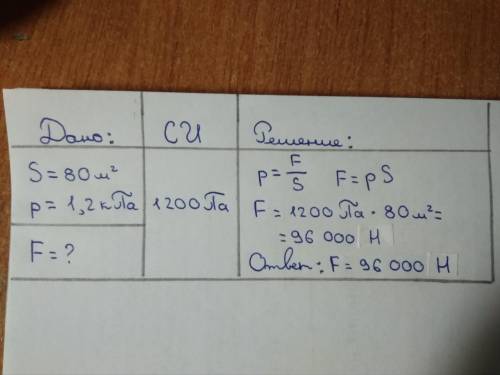 Дано:
СИ
Решение:
S = 80 м²
p = 1,2 кПа
1200 Па
F = ?
p = F/S F = pS
F = 1200 Па · 80 м² =
= 96 000 Н
Ответ: F = 96 000 Н